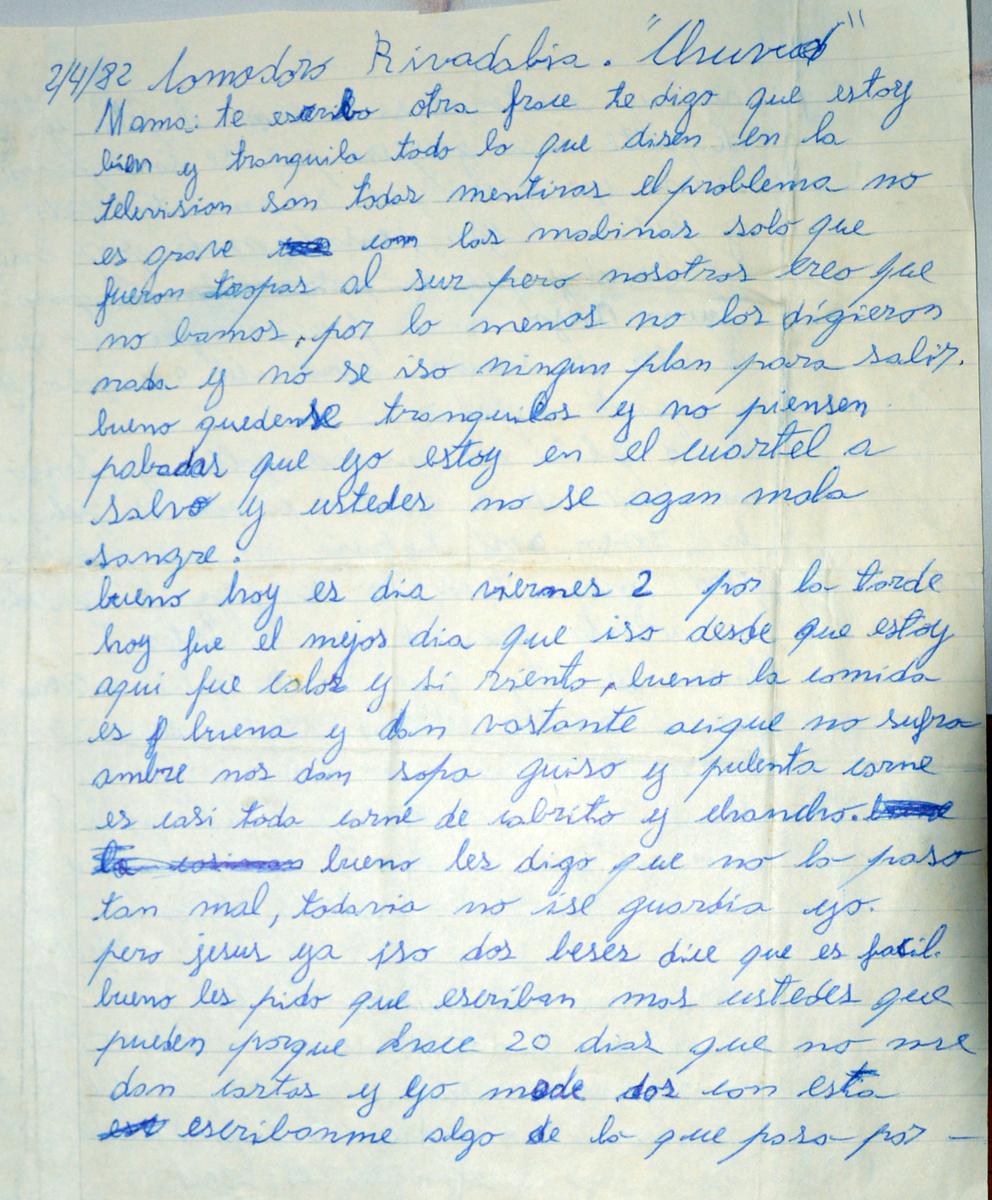 2/4/82 Comodoro Rivadabia. "Chuvud"
Mama: te escribo otra frace te digo que estoy
bien y tranquilo todo lo que disen en la
television son todas mentiras el problema no
es grave com las malvinas solo que
fueron tropas al sur pero nosotros creo que
no bamos, por lo menos no los digieron
nada y no se iso ningun plan para salir.
bueno quedense tranquilos y no piensen
pabadas que yo estoy en el cuartel a
salvo y ustedes no se agan mala
sangre.
bueno hoy es dia viernes 2 por la tarde
hoy fue el mejos dia que iso desde que estoy
aqui fue calor y si viento, bueno la comida
es buena y dan vastante acique no sufra
ambre nos dan sopa guiso y pulenta carne
es casi toda carne de cabrito y chancho.
bueno les digo que no la paso
tan mal, todavia no ise guardia yo.
pero jesus ya iso dos beses dice que es facil.
bueno les pido que escriban mas ustedes que
pueden porque hace 20 dias que no me
dan cartas y yo mode dos con esta
escribanme algo de lo que pasa por -